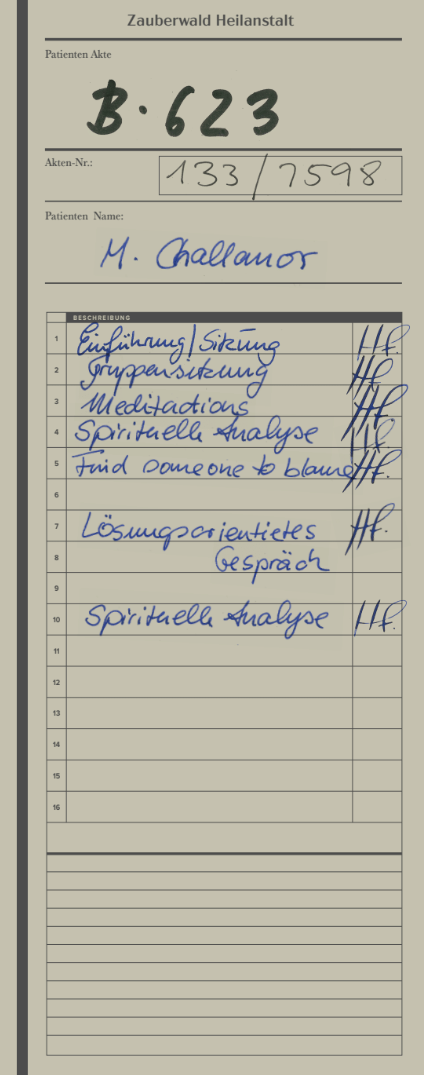 Zauberwald Heilanstalt
Patienten Akte
B.623
Akten-Nr.: 133/7598
Patienten Name:
M. Challanor
BESCHREIBUNG
1 Einführung/Sitzung Hf.
2 Gruppensitzung Hf.
3 Meditactions Hf.
4 Spirituelle Analyse Hf.
5 Find someone to blame Hf.
6
7 Lösungsorientietes Hf.
8 Gespräch
9
10 Spirituelle Analyse Hf.
11
12
13
14
15
16